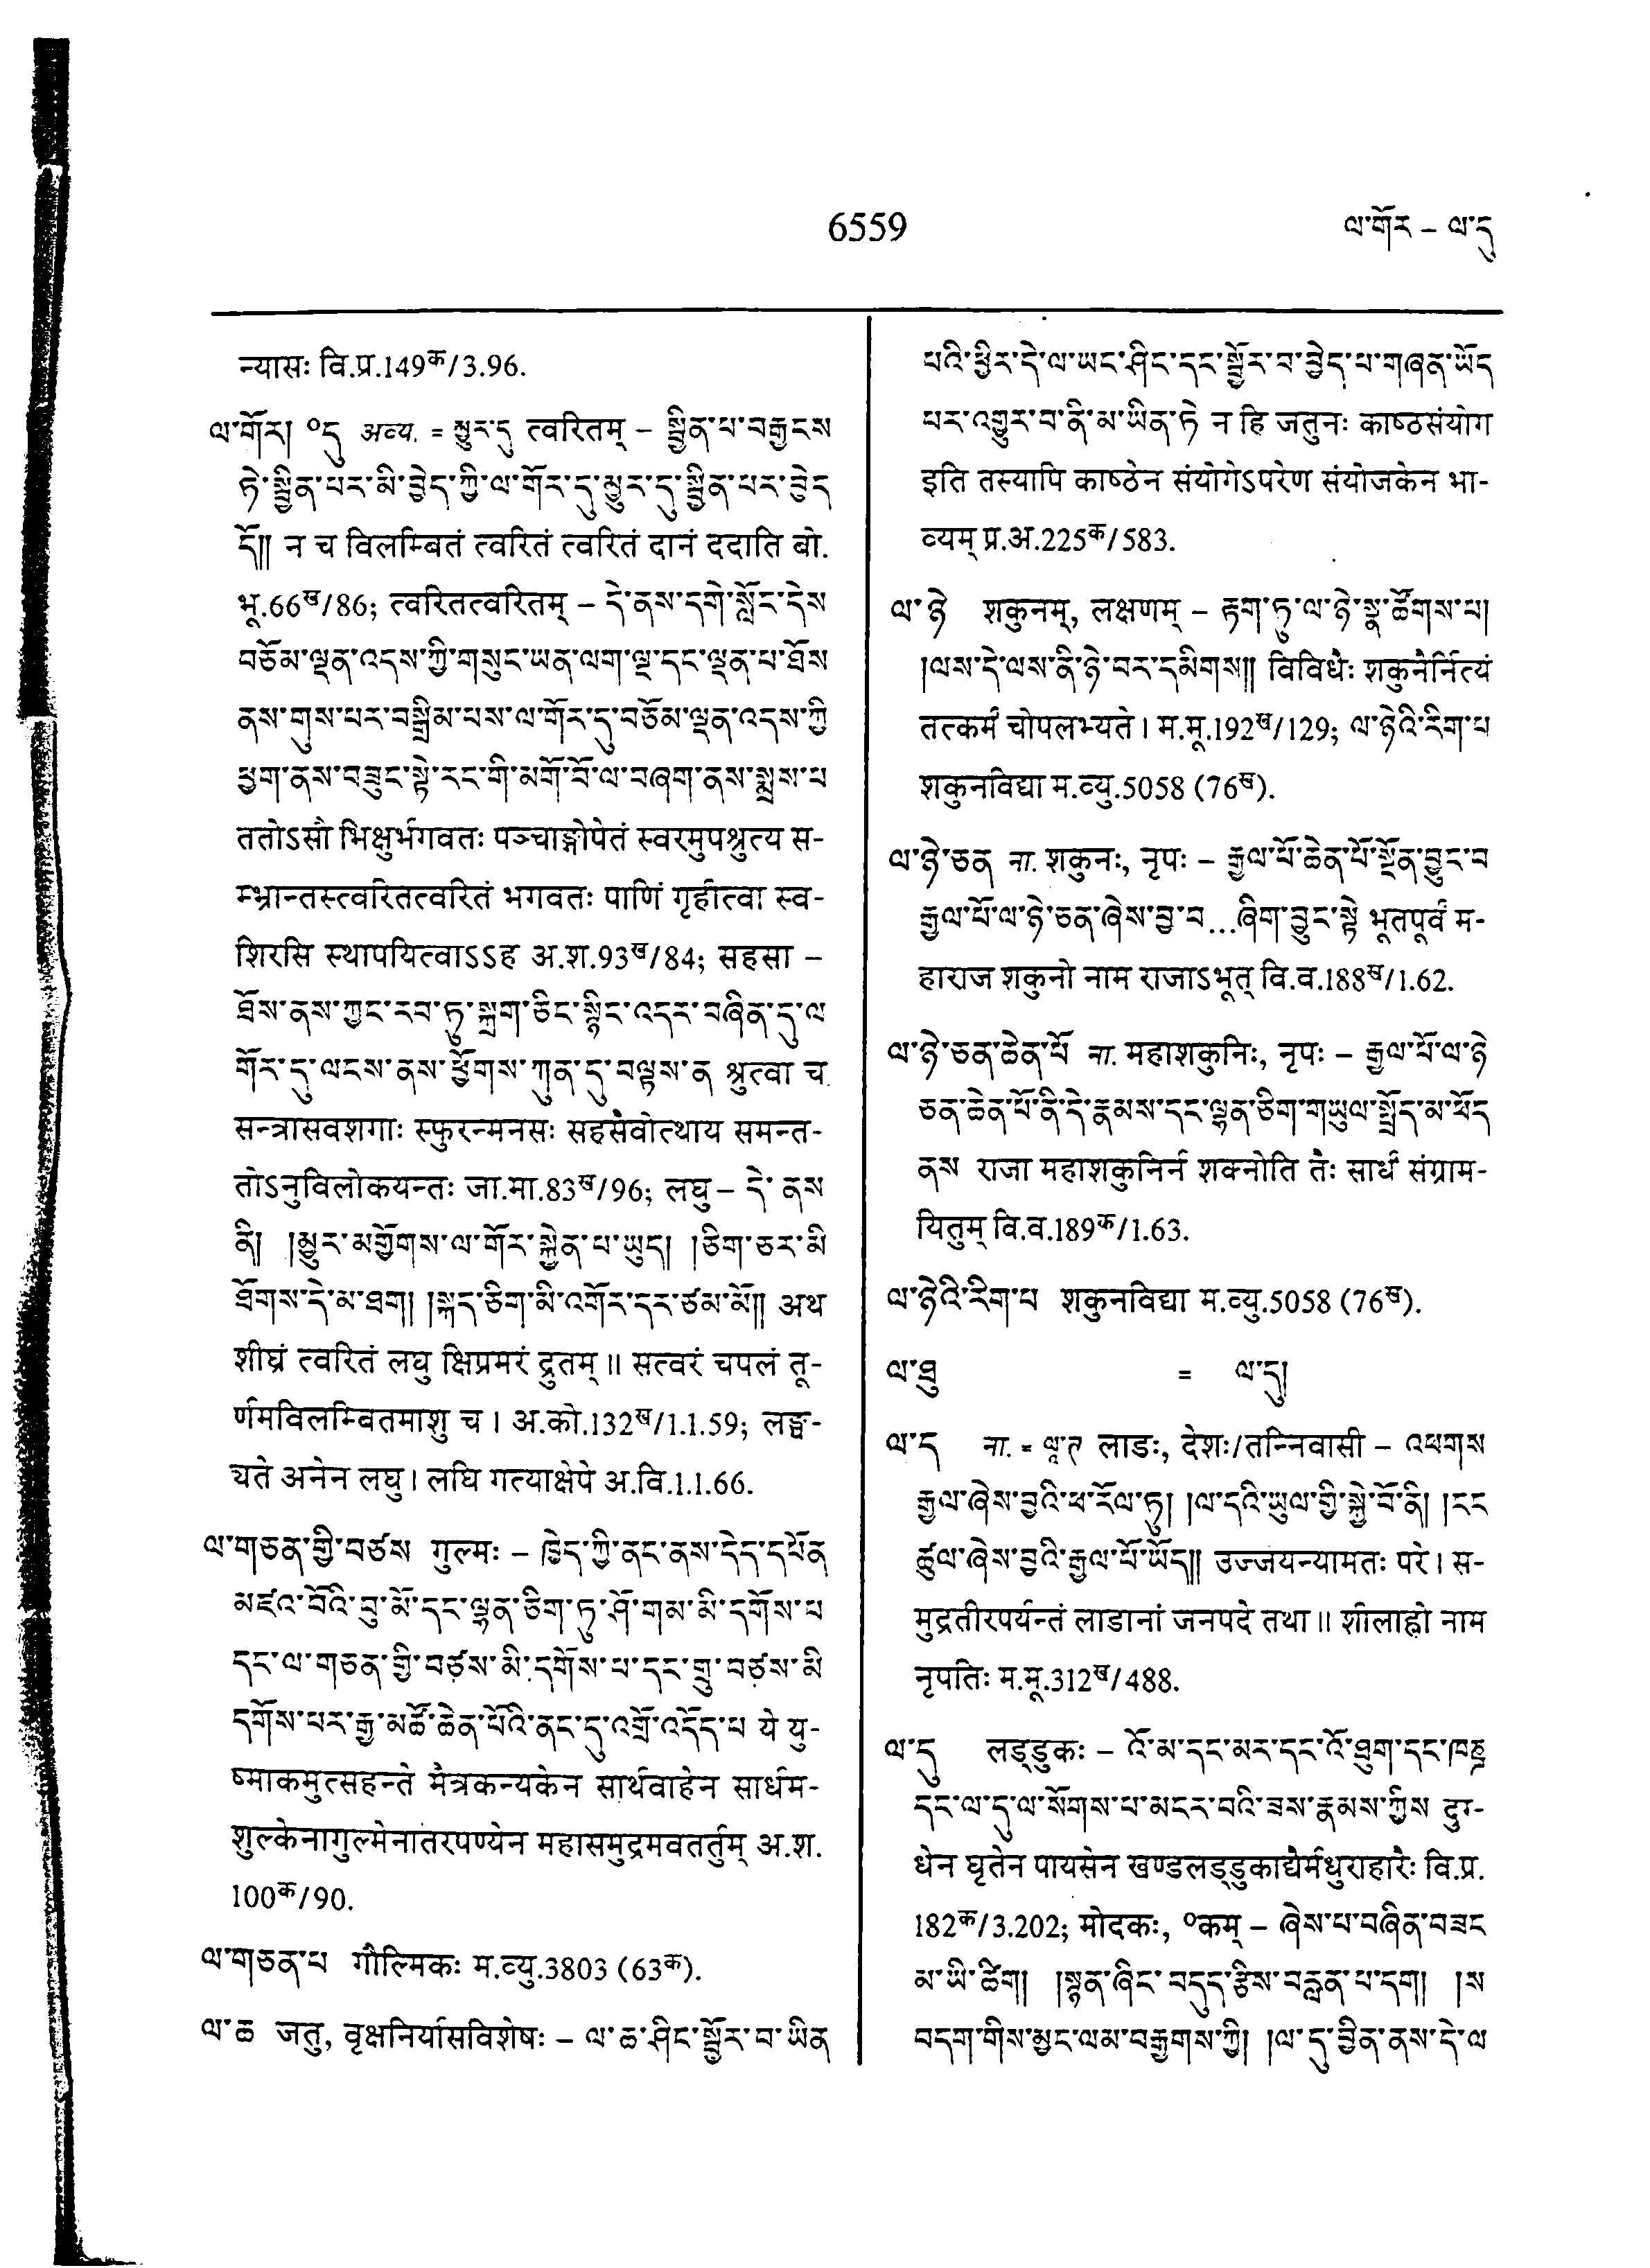 6559
ལ་གོར – ལ་དུ
न्यासः वि.प्र.149क/3.96.
ལ་གོར། ०དུ अव्य. = མྱུར་དུ त्वरितम् – སྦྱིན་པ་བརྒྱངས
ཏེ་སྦྱིན་པར་མི་བྱེད་ཀྱི་ལ་གོར་དུ་མྱུར་དུ་སྦྱིན་པར་བྱེད
དོ།། न च विलम्बितं त्वरितं त्वरितं दानं ददाति बो.
भू.66ख/86; त्वरितत्वरितम् – དེ་ནས་དགེ་སློང་དེས
བཅོམ་ལྡན་འདས་ཀྱི་གསུང་ཡན་ལག་ལྔ་དང་ལྡན་པ་ཐོས
ནས་གུས་པར་བསྒྲིམ་པས་ལ་གོར་དུ་བཅོམ་ལྡན་འདས་ཀྱི
ཕྱག་ནས་བཟུང་སྟེ་རང་གི་མགོ་བོ་ལ་བཞག་ནས་སྨྲས་པ
ततोऽसौ भिक्षुर्भगवतः पञ्चाङ्गोपेतं स्वरमुपश्रुत्य स-
म्भ्रान्तस्त्वरितत्वरितं भगवतः पाणिं गृहीत्वा स्व-
शिरसि स्थापयित्वाऽऽह अ.श.93ख/84; सहसा –
ཐོས་ནས་ཀྱང་རབ་ཏུ་སྐྲག་ཅིང་སྙིང་འདར་བཞིན་དུ་ལ
གོར་དུ་ལངས་ནས་ཕྱོགས་ཀུན་དུ་བལྟས་ན श्रुत्वा च
सन्त्रासवशगाः स्फुरन्मनसः सहसैवोत्थाय समन्त-
तोऽनुविलोकयन्तः जा.मा.83ख/96; लघु – དེ་ ནས
ནི། །མྱུར་མགྱོགས་ལ་གོར་སྐྱེན་པ་ཡུད། །ཅིག་ཅར་མི
ཐོགས་དེ་མ་ཐག། །སྐད་ཅིག་མི་འགོར་དར་ཙམ་མོ།། अथ
शीघ्रं त्वरितं लघु क्षिप्रमरं द्रुतम् ॥ सत्वरं चपलं तू-
र्णमविलम्बितमाशु च । अ.को.132ख/1.1.59; लङ्घ-
यते अनेन लघु । लघि गत्याक्षेपे अ.वि.1.1.66.
ལ་གཅན་གྱི་བཙས गुल्मः – ཁྱེད་ཀྱི་ནང་ནས་དེད་དཔོན
མཛའ་བོའི་བུ་མོ་དང་ལྷན་ཅིག་ཏུ་ཤོ་གམ་མི་དགོས་པ
དང་ལ་གཅན་གྱི་བཙས་མི་དགོས་པ་དང་གྲུ་བཙས་མི
དགོས་པར་རྒྱ་མཚོ་ཆེན་པོའི་ནང་དུ་འགྲོ་འདོད་པ ये यु-
ष्माकमुत्सहन्ते मैत्रकन्यकेन सार्थवाहेन सार्धम-
शुल्केनागुल्मेनातरपण्येन महासमुद्रमवतर्तुम् अ.श.
100क/90.
ལ་གཅན་པ गौल्मिकः म.व्यु.3803 (63क).
ལ་ཆ जतु, वृक्षनिर्यासविशेषः – ལ་ཆ་ཤིང་སྦྱོར་བ་ཡིན
པའི་ཕྱིར་དེ་ལ་ཡང་ཤིང་དང་སྦྱོར་བ་བྱེད་པ་གཞན་ཡོད
པར་འགྱུར་བ་ནི་མ་ཡིན་ཏེ न हि जतुनः काष्ठसंयोग
इति तस्यापि काष्ठेन संयोगेऽपरेण संयोजकेन भा-
व्यम् प्र.अ.225क/583.
ལ་ཉེ शकुनम्, लक्षणम् – རྟག་ཏུ་ལ་ཉེ་སྣ་ཚོགས་པ།
།ལས་དེ་ལས་ནི་ཉེ་བར་དམིགས།། विविधैः शकुनैर्नित्यं
तत्कर्म चोपलभ्यते । म.मू.192ख/129; ལ་ཉེའི་རིག་པ
शकुनविद्या म.व्यु.5058 (76ख).
ལ་ཉེ་ཅན ना. शकुनः, नृपः – རྒྱལ་པོ་ཆེན་པོ་སྔོན་བྱུང་བ
རྒྱལ་པོ་ལ་ཉེ་ཅན་ཞེས་བྱ་བ...ཞིག་བྱུང་སྟེ भूतपूर्वं म-
हाराज शकुनो नाम राजाऽभूत् वि.व.188ख/1.62.
ལ་ཉེ་ཅན་ཆེན་པོ ना. महाशकुनिः, नृपः – རྒྱལ་པོ་ལ་ཉེ
ཅན་ཆེན་པོ་ནི་དེ་རྣམས་དང་ལྷན་ཅིག་གཡུལ་སྤྲོད་མ་ཕོད
ནས राजा महाशकुनिर्न शक्नोति तैः सार्धं संग्राम-
यितुम् वि.व.189क/1.63.
ལ་ཉེའི་རིག་པ शकुनविद्या म.व्यु.5058 (76ख).
ལ་ཐུ = ལ་དུ།
ལ་ད ना. = ལཱ་ཊ लाडः, देशः/तन्निवासी – འཕགས
རྒྱལ་ཞེས་བྱའི་ཕ་རོལ་ཏུ། །ལ་དའི་ཡུལ་གྱི་སྐྱེ་བོ་ནི། །ངང
ཚུལ་ཞེས་བྱའི་རྒྱལ་པོ་ཡོད།། उज्जयन्यामतः परे । स-
मुद्रतीरपर्यन्तं लाडानां जनपदे तथा ॥ शीलाह्वो नाम
नृपतिः म.मू.312ख/488.
ལ་དུ लड्डुकः – འོ་མ་དང་མར་དང་འོ་ཐུག་དང་ཁཎྜ
དང་ལ་དུ་ལ་སོགས་པ་མངར་བའི་ཟས་རྣམས་ཀྱིས दुग्-
धेन घृतेन पायसेन खण्डलड्डुकाद्यैर्मधुराहारैः वि.प्र.
182क/3.202; मोदकः, ०कम् – ཞེས་པ་བཞིན་བཟང
མ་ཡི་ཚིག། །སྙན་ཞིང་བདུད་རྩིས་བརླན་པ་དག། །ས
བདག་གིས་མྱང་ལམ་བརྒྱགས་ཀྱི། །ལ་དུ་བྱིན་ནས་དེ་ལ